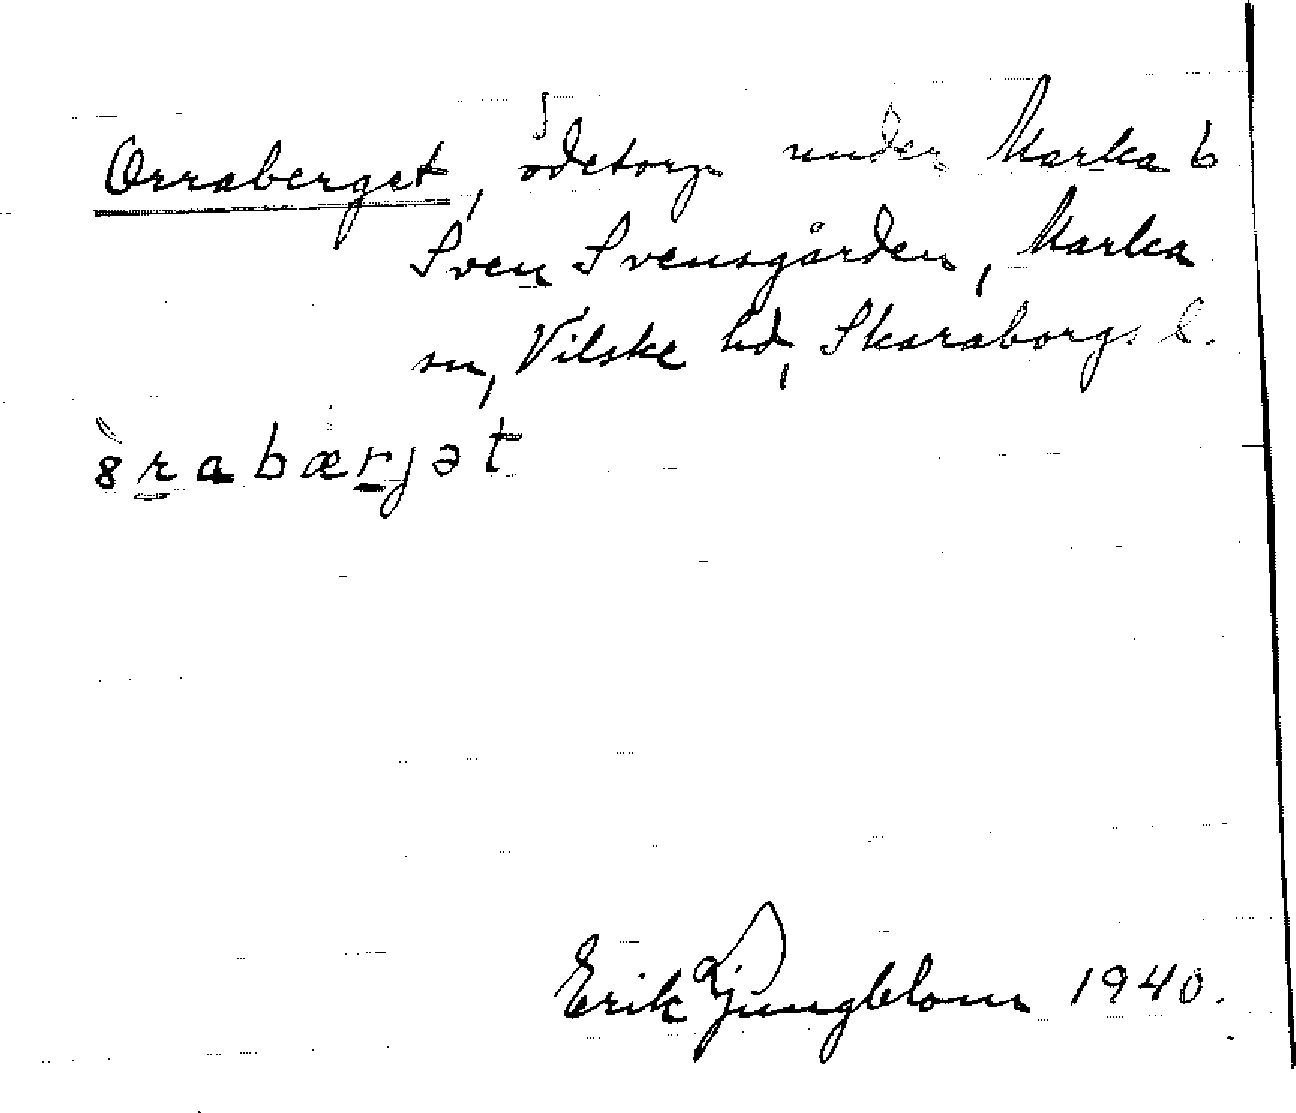 Orraberget, ödetorp under Marka 6
Sven Svensgården, Marka
sn, Vilske hd, Skaraborgs l.
8̀rabærjət
Erik Ljungblom 1940.